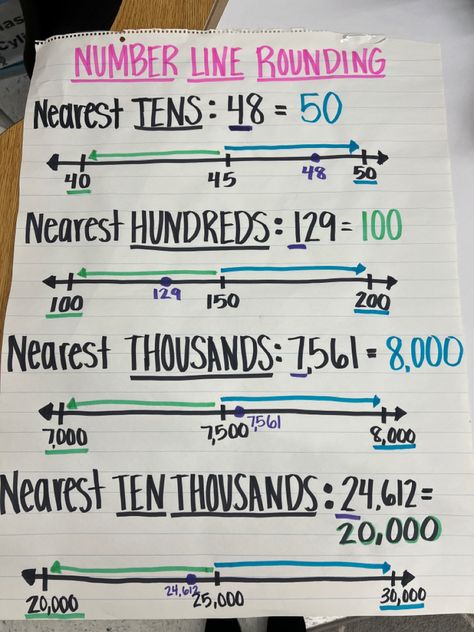 NUMBER LINE ROUNDING
Nearest TENS: 48 = 50
40 45 48 50
Nearest HUNDREDS: 129 = 100
100 129 150 200
Nearest THOUSANDS: 7,561 = 8,000
7,000 7,500 7,561 8,000
Nearest TEN THOUSANDS: 24,612 =
20,000
20,000 24,612 25,000 30,000